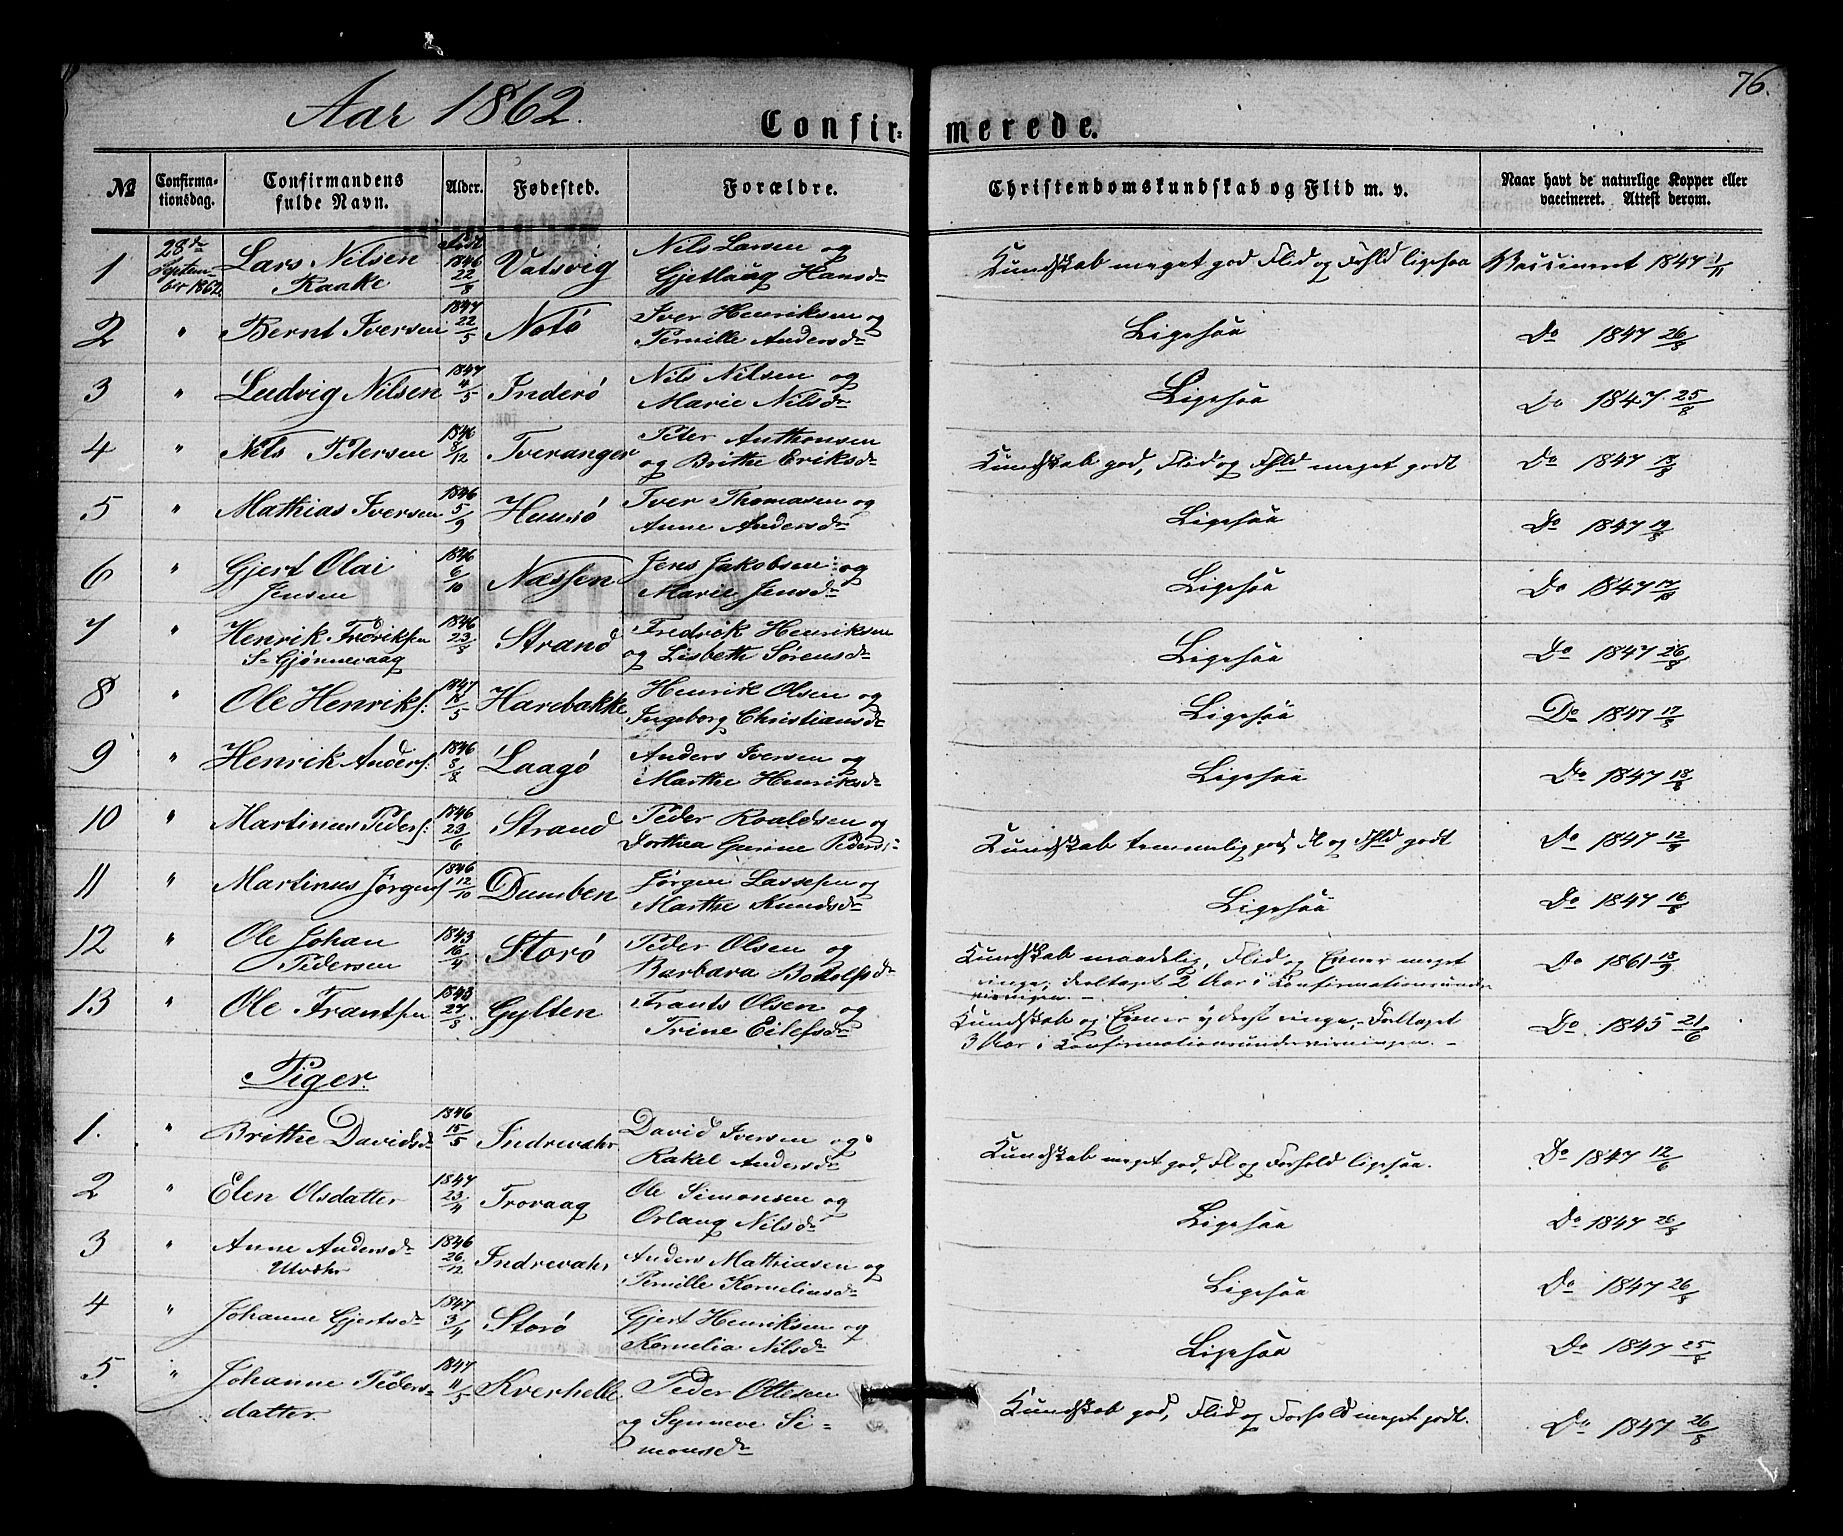 76.
Aar 1862.
Confir- merede.
№ Confirma-tionsdag. Confirmandens fulde Navn. Alder. Fødested. Forældre. Christendomskundskab og Flid m. v. Naar havt de naturlige Kopper eller vaccineret. Attest derom.
1 28de September 1862. Lars Nilsen Raake født 1846 22/8 Vatsvig Nils Larsen og Gjetlaug Hansd. Kundskab meget god Flid og Forhld ligesaa Vaccineret 1847
2 " Bernt Iversen 1847 22/5 Notø Iver Henriksen og Pernille Andersd. Ligesaa Do 1847 26/8
3 " Ludvig Nilsen 1847 4/5 Inderø Nils Nilsen og Marie Nilsd. Ligesaa Do 1847 25/8
4 " Nils Petersen 1846 8/12 Tveranger Peter Anthonsen og Brithe Eriksd. Kundskab god, Flid og Fhld meget godt Do 1847
5 " Mathias Iversen 1846 5/9 Iver Thomasen og Anne Andersd. Ligesaa Do 1847 19/8
6 " Gjert Olai Jensen 1846 6/10 Næssen Jens Jakobsen og Marie Jensd. Ligesaa Do 1847
7 " Henrik Fredriksen S. Gjønnevaag 1846 23/8 Strand Fredrik Henriksen og Lisbeth Sørensd. Ligesaa Do 1847 26/8
8 " Ole Henriks: 1847 Harebakke Henrik Olsen og Ingeborg Christiansd. Ligesaa Do 1847
9 " Henrik Anders: 1846 8/8 Laagø Anders Iversen og Marthe Henriksd. Ligesaa Do 1847
10 " Martinus Peders: 1846 23/6 Strand Peder Roaldsen og Dorthea Gurine Peders: Kundskab temmelig god, Fl og Fhld godt Do 1847 12/8
11 " Martinus Jørgens 1846 12/10 Dumben Jørgen Lassesen og Marthe Knudsd. Ligesaa Do 1847 16/8
12 " Ole Johan Pedersen 1843 16/4 Storø Peder Olsen og Barbara Botolfsd. Kundskab maadelig, Flid og Evner meget ringe; deltaget 2 Aar i Konfirmationsundervisningen. - Do 1861 18/9
13 " Ole Frantsen 1843 27/8 Gylten Frants Olsen og Trine Eilefsd. Kundskab og Evner yderst ringe, Deltaget 3 Aar i Konfirmationsundervisningen. - Do 1845 21/6
Piger.
1. " Brithe Davidsd. 1846 15/5 Indrevahr David Iversen og Rakel Andersd. Kundskab meget god, Fl og Forhold ligesaa. Do 1847 12/6
2 " Elen Olsdatter 1847 23/4 Trovaag Ole Simonsen og Orlaug Nilsd. Ligesaa Do 1847 26/8
3 " Anne Andersd. Utvahr 1846 26/12 Indrevahr Anders Mathiasen og Pernille Korneliusd. Ligesaa Do 1847 26/8
4 " Johanne Gjertsd. 1847 3/4 Storø Gjert Henriksen og Kornelia Nilsd. Ligesaa Do 1847 25/8
5. " Johanne Pedersdatter. 1847 11/5 Kverhelle Peder Ottesen og Synneve Simonsd. Kundskab god, Flid og Forhold meget godt. Do 1847 26/8